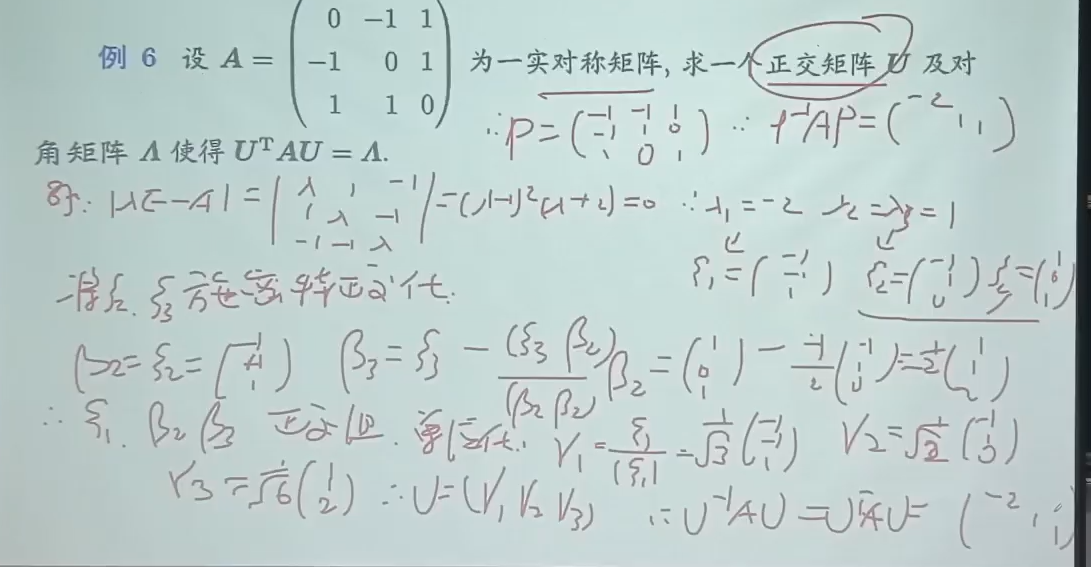 例 6 设 A = ( 0 -1 1 ; -1 0 1 ; 1 1 0 ) 为一实对称矩阵, 求一个正交矩阵 U 及对
∴ P = ( -1 -1 1 ; -1 1 0 ; 1 0 1 ) ∵ P⁻¹AP = ( -2 1 1 )
角矩阵 Λ 使得 UᵀAU = Λ.
解: |λE-A| = | λ 1 -1 ; 1 λ -1 ; -1 -1 λ | = (λ-1)²(λ+2) = 0 ∴ λ₁ = -2 λ₂ = λ₃ = 1
ξ₁ = ( -1 -1 1 ) ξ₂ = ( -1 1 0 ) ξ₃ = ( 1 0 1 )
ξ₂. ξ₃ 正交化.
β₂ = ξ₂ = ( -1 1 1 ) β₃ = ξ₃ - (ξ₃ β₂)/(β₂ β₂) β₂ = ( 1 0 1 ) - -1/2 ( -1 1 0 ) = 1/2 ( 1 1 2 )
∴ ξ₁. β₂ β₃ 正交组. 单位化. γ₁ = ξ₁/|ξ₁| = 1/√3 ( -1 -1 1 ) γ₂ = 1/√2 ( -1 1 0 )
γ₃ = 1/√6 ( 1 1 2 ) ∴ U = (γ₁ γ₂ γ₃) ∴ U⁻¹AU = UᵀAU = ( -2 1 1 )